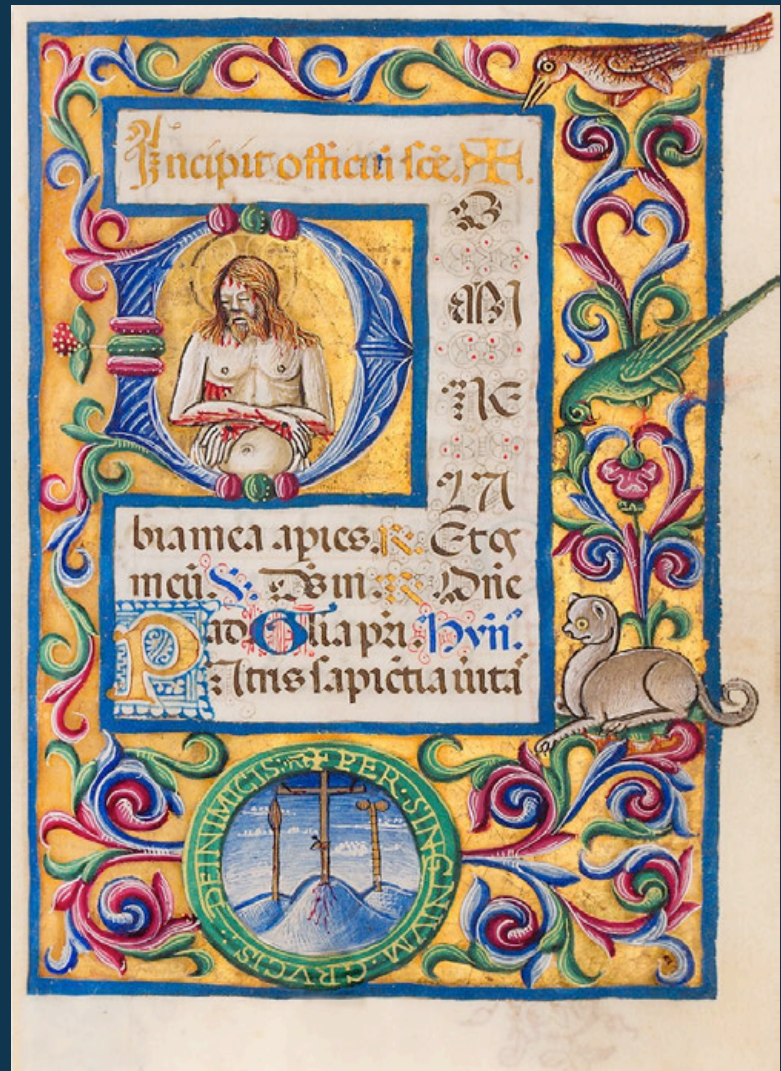 Incipit officiũ sce. ✠.
D
O
MI
NE
LA
bia mea apies. R. Et os
meũ V. Ds in. R. Dñe
ad Glia pri. Hyn.
Patris sapiẽtia uita
✠ PER · SINGNIUM · CRVCIS · DEINIMICIS